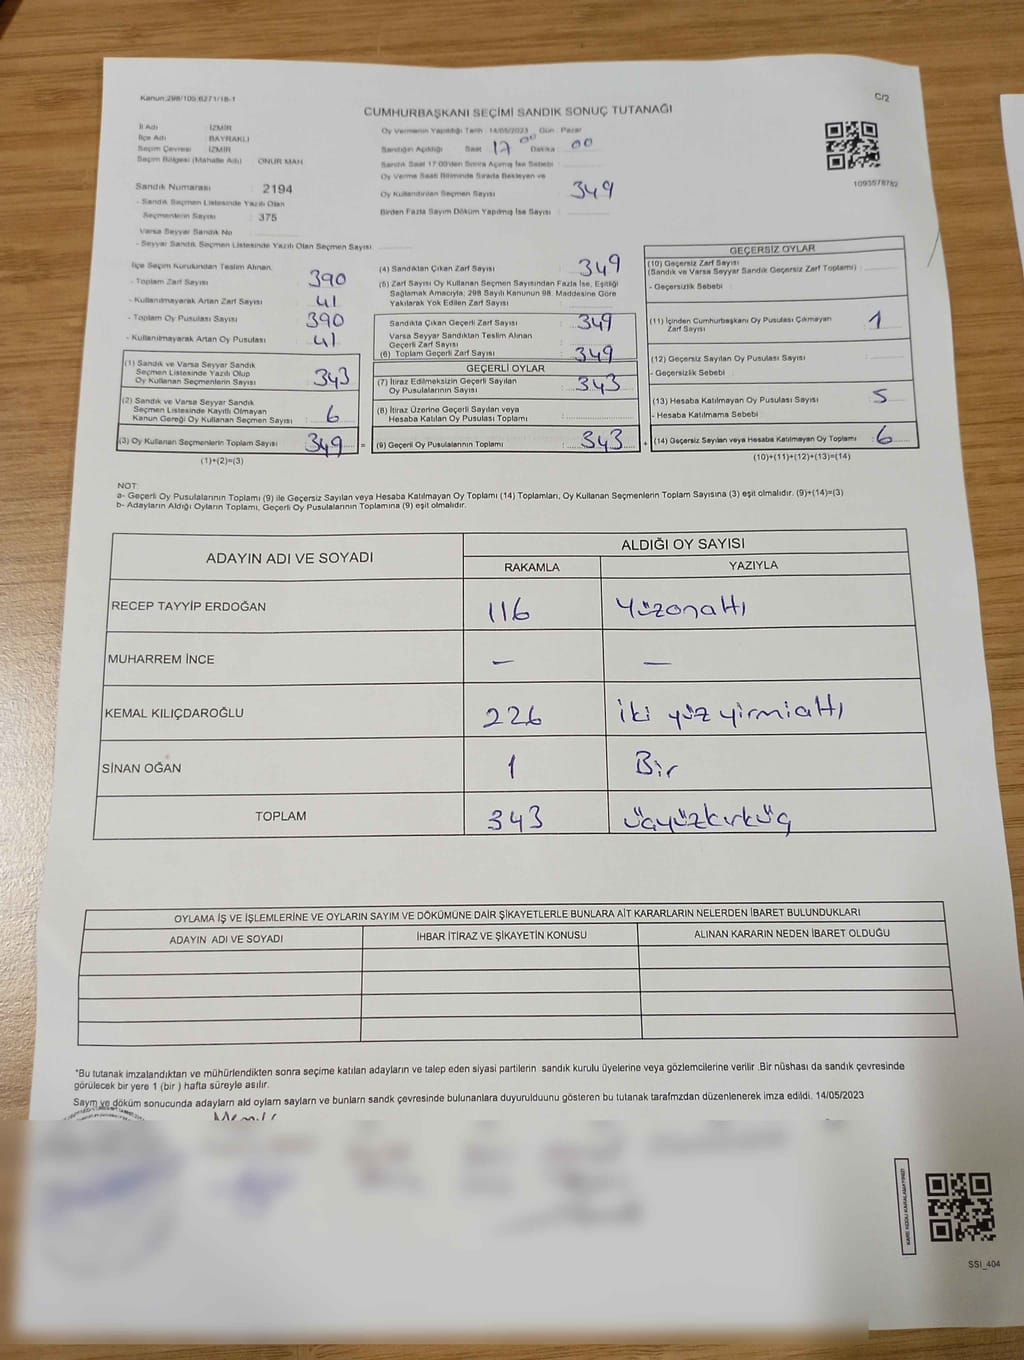 Kanun:298/105:6271/18-1
C/2
CUMHURBAŞKANI SEÇİMİ SANDIK SONUÇ TUTANAĞI
İl Adı : İZMİR
İlçe Adı : BAYRAKLI
Seçim Çevresi : İZMİR
Seçim Bölgesi (Mahalle Adı) ONUR MAH.
Sandık Numarası : 2194
- Sandık Seçmen Listesinde Yazılı Olan
Seçmenlerin Sayısı : 375
Varsa Seyyar Sandık No
- Seyyar Sandık Seçmen Listesinde Yazılı Olan Seçmen Sayısı:
Oy Vermenin Yapıldığı Tarih : 14/05/2023 Gün : Pazar
Sandığın Açıldığı Saat : 17 00 Dakika : 00
Sandık Saat 17:00'den Sonra Açılmış İse Sebebi :
Oy Verme Saati Bitiminde Sırada Bekleyen ve
Oy Kullandırılan Seçmen Sayısı : 349
Birden Fazla Sayım Döküm Yapılmış İse Sayısı :
1093578782
İlçe Seçim Kurulundan Teslim Alınan:
- Toplam Zarf Sayısı : 390
- Kullanılmayarak Artan Zarf Sayısı : 41
- Toplam Oy Pusulası Sayısı : 390
- Kullanılmayarak Artan Oy Pusulası : 41
(1) Sandık ve Varsa Seyyar Sandık
Seçmen Listesinde Yazılı Olup
Oy Kullanan Seçmenlerin Sayısı : 343
(2) Sandık ve Varsa Seyyar Sandık
Seçmen Listesinde Kayıtlı Olmayan
Kanun Gereği Oy Kullanan Seçmen Sayısı : 6
(3) Oy Kullanan Seçmenlerin Toplam Sayısı : 349 =
(1)+(2)=(3)
(4) Sandıktan Çıkan Zarf Sayısı : 349
(5) Zarf Sayısı Oy Kullanan Seçmen Sayısından Fazla İse, Eşitliği
Sağlamak Amacıyla, 298 Sayılı Kanunun 98. Maddesine Göre
Yakılarak Yok Edilen Zarf Sayısı :
Sandıkta Çıkan Geçerli Zarf Sayısı : 349
Varsa Seyyar Sandıktan Teslim Alınan
Geçerli Zarf Sayısı
(6) Toplam Geçerli Zarf Sayısı : 349
GEÇERLİ OYLAR
(7) İtiraz Edilmeksizin Geçerli Sayılan
Oy Pusulalarının Sayısı : 343
(8) İtiraz Üzerine Geçerli Sayılan veya
Hesaba Katılan Oy Pusulası Toplamı :
(9) Geçerli Oy Pusulalarının Toplamı : 343 +
GEÇERSİZ OYLAR
(10) Geçersiz Zarf Sayısı
(Sandık ve Varsa Seyyar Sandık Geçersiz Zarf Toplamı) :
- Geçersizlik Sebebi :
(11) İçinden Cumhurbaşkanı Oy Pusulası Çıkmayan
Zarf Sayısı : 1
(12) Geçersiz Sayılan Oy Pusulası Sayısı :
- Geçersizlik Sebebi :
(13) Hesaba Katılmayan Oy Pusulası Sayısı : 5
- Hesaba Katılmama Sebebi
(14) Geçersiz Sayılan veya Hesaba Katılmayan Oy Toplamı : 6
(10)+(11)+(12)+(13)=(14)
NOT:
a- Geçerli Oy Pusulalarının Toplamı (9) ile Geçersiz Sayılan veya Hesaba Katılmayan Oy Toplamı (14) Toplamları, Oy Kullanan Seçmenlerin Toplam Sayısına (3) eşit olmalıdır. (9)+(14)=(3)
b- Adayların Aldığı Oyların Toplamı, Geçerli Oy Pusulalarının Toplamına (9) eşit olmalıdır.
ADAYIN ADI VE SOYADI
ALDIĞI OY SAYISI
RAKAMLA YAZIYLA
RECEP TAYYİP ERDOĞAN 116 yüzonaltı
MUHARREM İNCE – —
KEMAL KILIÇDAROĞLU 226 iki yüz yirmialtı
SİNAN OĞAN 1 Bir
TOPLAM 343 üçyüzkırküç
OYLAMA İŞ VE İŞLEMLERİNE VE OYLARIN SAYIM VE DÖKÜMÜNE DAİR ŞİKAYETLERLE BUNLARA AİT KARARLARIN NELERDEN İBARET BULUNDUKLARI
ADAYIN ADI VE SOYADI İHBAR İTİRAZ VE ŞİKAYETİN KONUSU ALINAN KARARIN NEDEN İBARET OLDUĞU
*Bu tutanak imzalandıktan ve mühürlendikten sonra seçime katılan adayların ve talep eden siyasi partilerin sandık kurulu üyelerine veya gözlemcilerine verilir .Bir nüshası da sandık çevresinde
görülecek bir yere 1 (bir ) hafta süreyle asılır.
Saym ve döküm sonucunda adaylarn ald oylarn saylarn ve bunlarn sandk çevresinde bulunanlara duyurulduunu gösteren bu tutanak tarafmzdan düzenlenerek imza edildi. 14/05/2023
KARE KODU KARALAMAYINIZ!
SSI_404